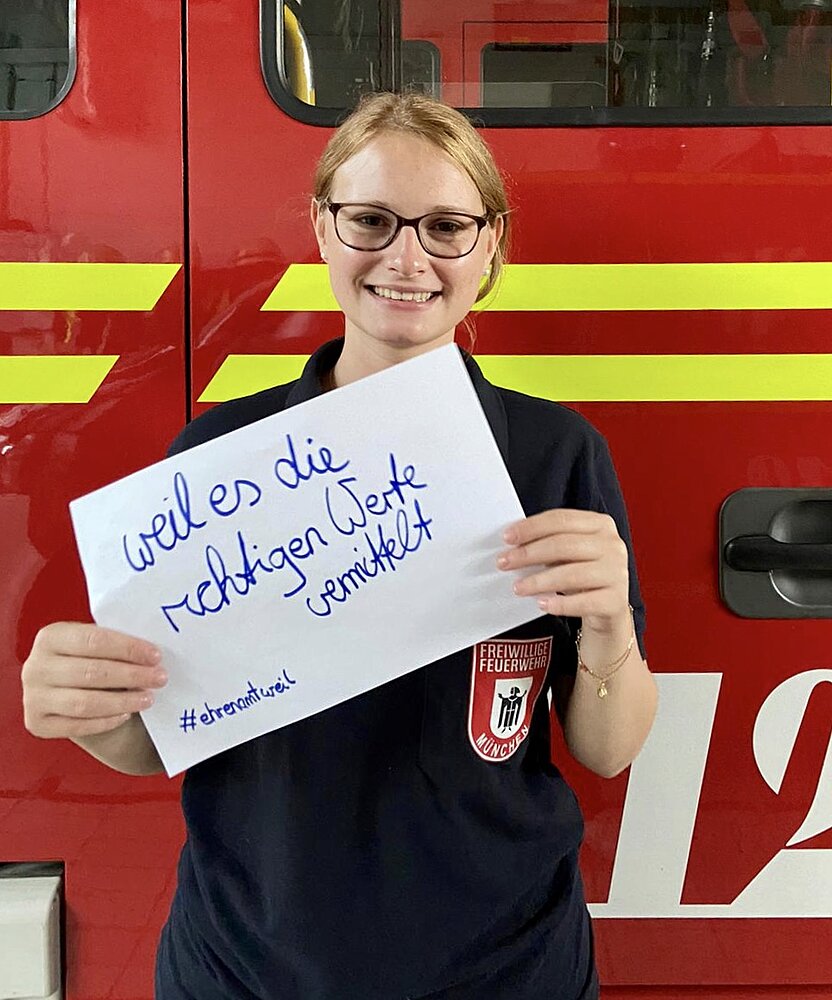 weil es die
richtigen Werte
vermittelt
#ehrenamtweil
FREIWILLIGE
FEUERWEHR
MÜNCHEN
12